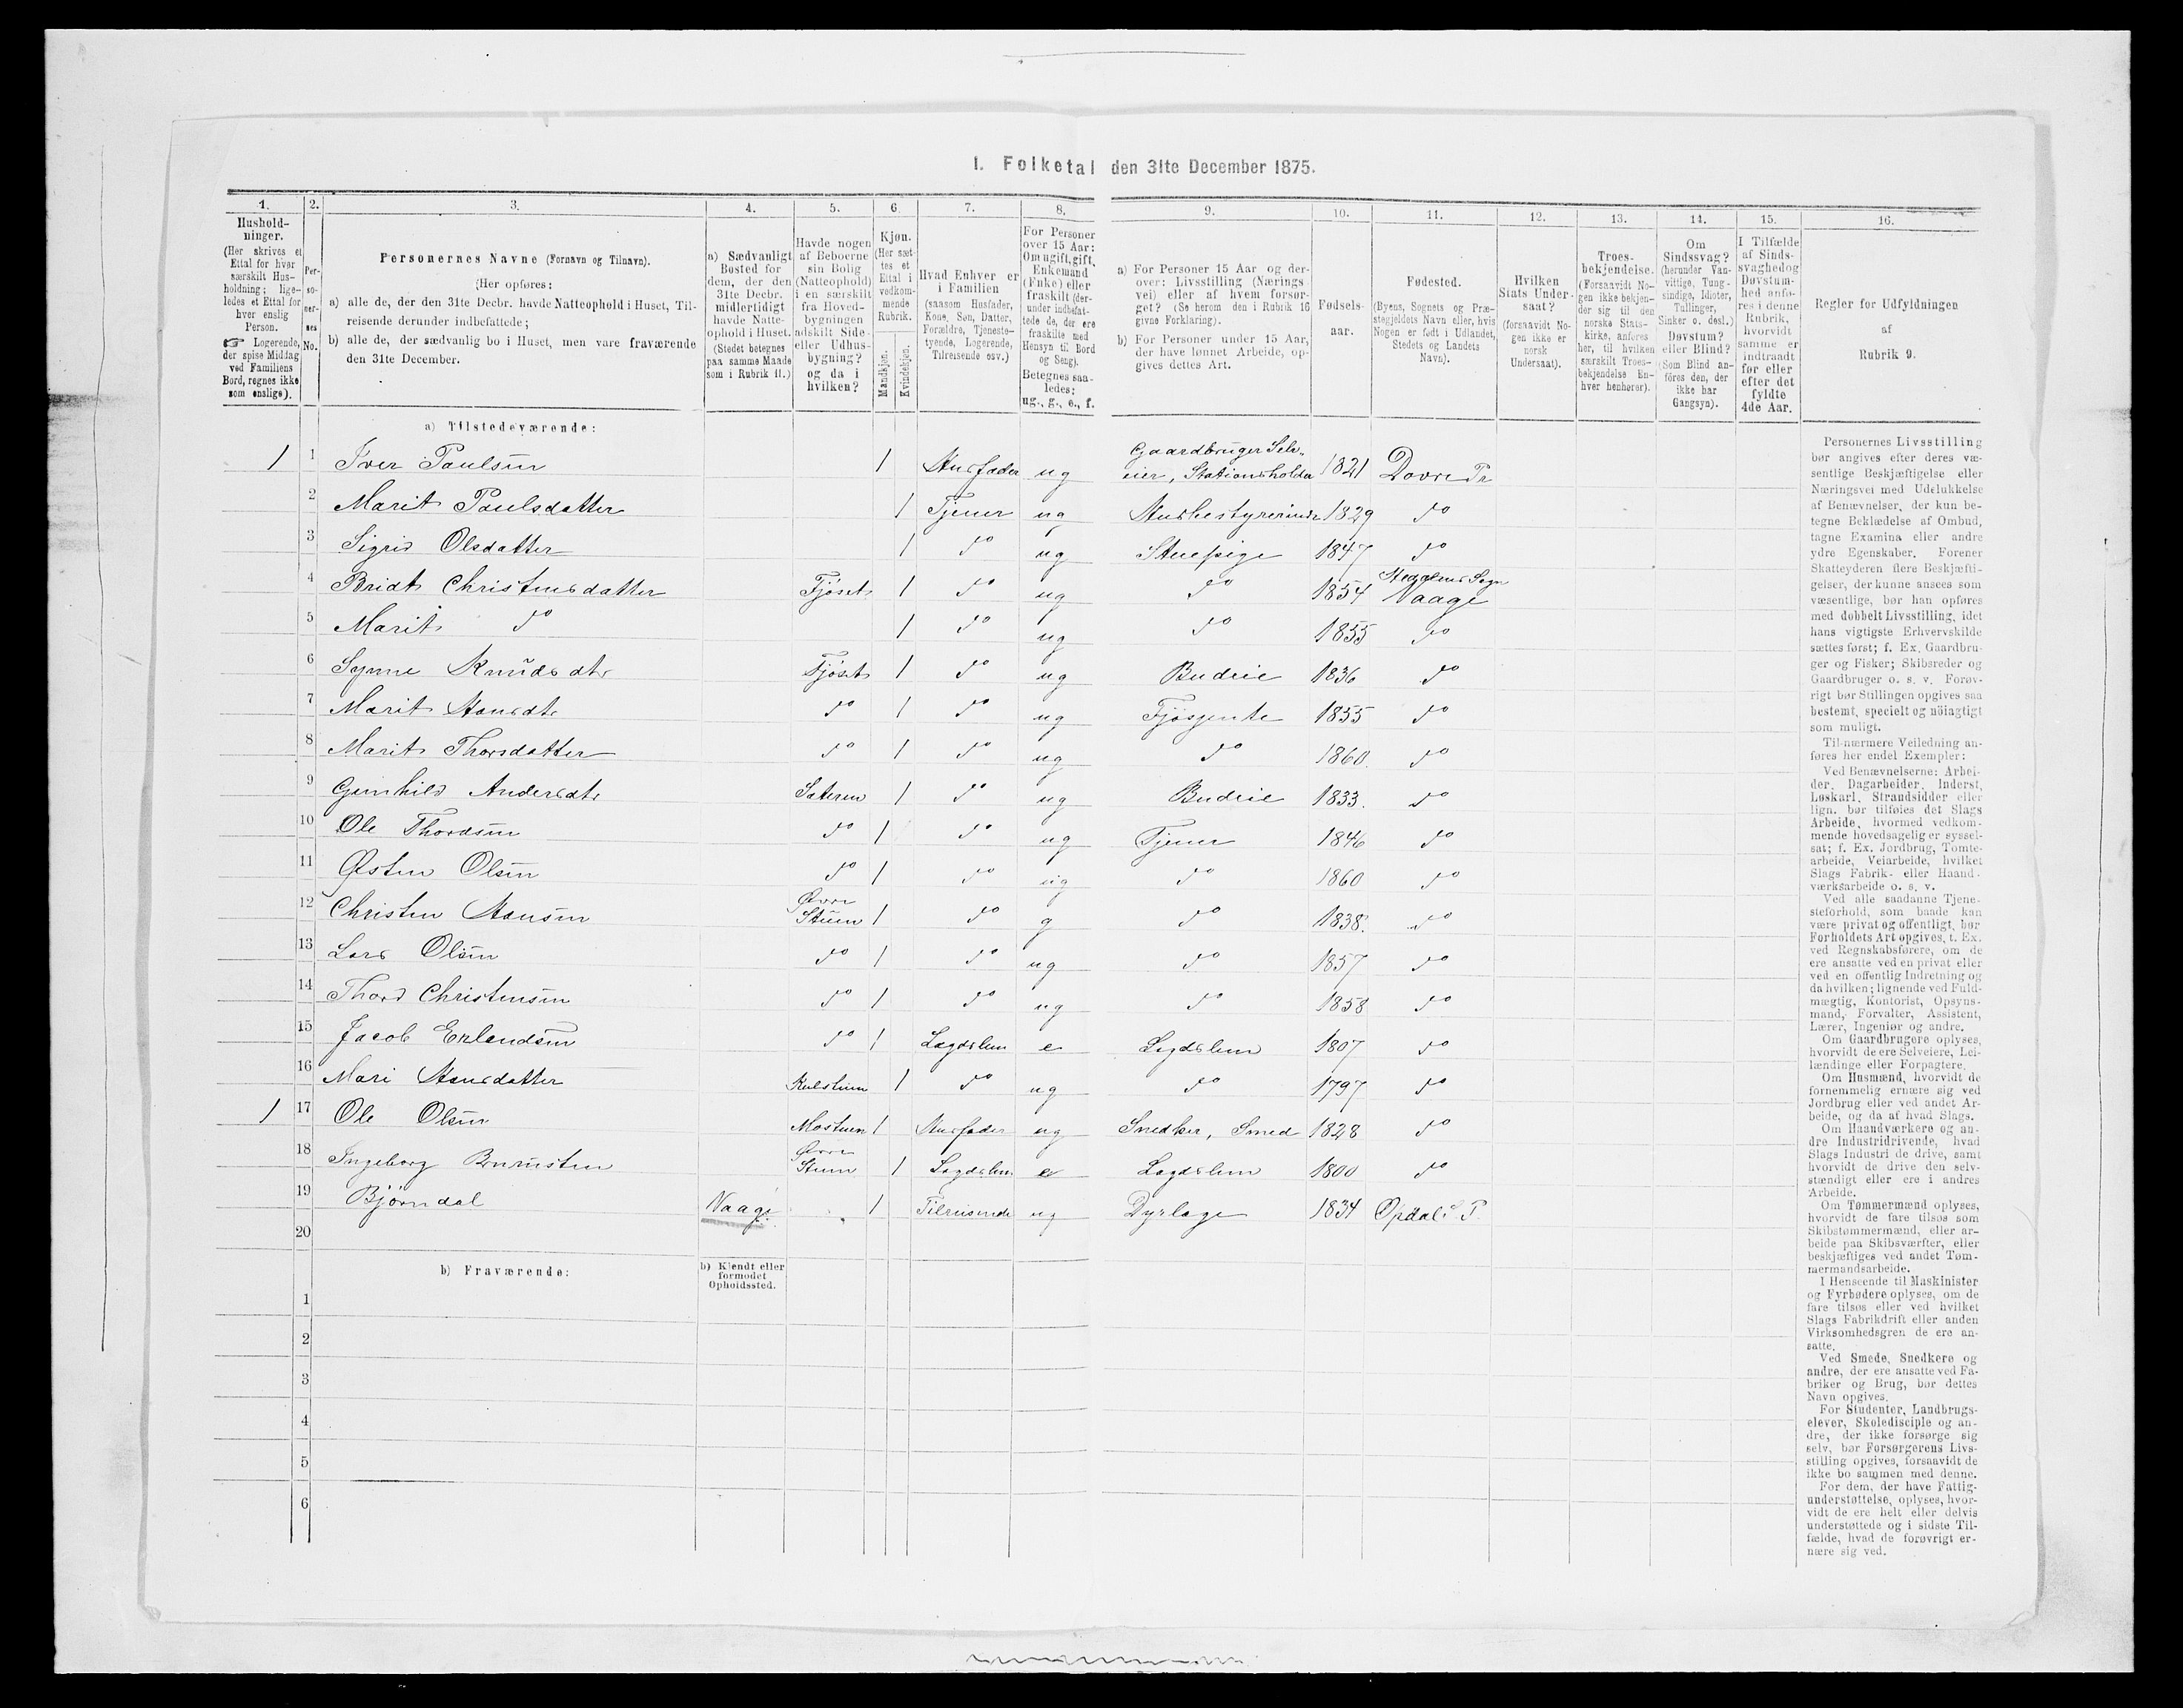 I. Folketal den 31te December 1875.
1. 2. 3. 4. 5. 6. 7. 8. 9. 10. 11. 12. 13. 14. 15. 16.
Hushold-
ninger.
(Her skrives et
Ettal for hver
særskilt Hus-
holdning; lige-
ledes et Ettal for
hver enslig
Person.
☞ Logerende,
der spise Middag
ved Familiens
Bord, regnes ikke
som enslige).
Per-
so-
ner-
nes
No.
Personernes Navne (Fornavn og Tilnavn).
(Her opføres:
a) alle de, der den 31te Decbr. havde Natteophold i Huset, Til-
reisende derunder indbefattede;
b) alle de, der sædvanlig bo i Huset, men vare fraværende
den 31te December.
a) Sædvanligt
Bosted for
dem, der den
31te Decbr.
midlertidigt
havde Natte-
ophold i Huset.
(Stedet betegnes
paa samme Maade
som i Rubrik 11.)
Havde nogen
af Beboerne
sin Bolig
(Natteophold)
i en særskilt
fra Hoved-
bygningen
adskilt Side-
eller Udhus-
bygning?
og da i
hvilken?
Kjøn.
(Her sæt-
tes et
Ettal i
vedkom-
mende
Rubrik.
Mandkjøn.
Kvindekjøn.
Hvad Enhver er
i Familien
(saasom Husfader,
Kone, Søn, Datter,
Forældre, Tjeneste-
tyende, Logerende,
Tilreisende osv.)
For Personer
over 15 Aar:
Om ugift, gift,
Enkemand
(Enke) eller
fraskilt (der-
under indbefat-
tede de, der ere
fraskilte med
Hensyn til Bord
og Seng).
Betegnes saa-
ledes:
ug., g., e., f.
a) For Personer 15 Aar og der-
over: Livsstilling (Nærings-
vei) eller af hvem forsør-
get? (Se herom den i Rubrik 16
givne Forklaring).
b) For Personer under 15 Aar,
der have lønnet Arbeide, op-
gives dettes Art.
Fødsels-
aar.
Fødested.
(Byens, Sognets og Præ-
stegjeldets Navn eller, hvis
Nogen er født i Udlandet,
Stedets og Landets
Navn).
Hvilken
Stats Under-
saat?
(forsaavidt No-
gen ikke er
norsk
Undersaat).
Troes-
bekjendelse.
(Forsaavidt No-
gen ikke bekjen-
der sig til den
norske Stats-
kirke, anføres
her, til hvilken
særskilt Troes-
bekjendelse En-
hver henhører).
Om
Sindssvag?
(herunder Van-
vittige, Tung-
sindige, Idioter,
Tullinger,
Sinker o. desl.)
Døvstum?
eller Blind?
(Som Blind an-
føres den, der
ikke har
Gangsyn).
I Tilfælde
af Sinds-
svaghed og
Døvstum-
hed anfø-
res i denne
Rubrik,
hvorvidt
samme er
indtraadt
før eller
efter det
fyldte
4de Aar.
Regler for Udfyldningen
af
Rubrik 9.
a) Tilstedeværende:
1 1 Iver Paulsen 1 Husfader ug Gaardbruger Selv-
eier, Stationsholder 1821 Dovre Pr
2 Marit Paulsdatter 1 Tjener ug Husbestyrerinde 1829 do
3 Sigrid Olsdatter 1 do ug Stuepige 1847 do
4 Bridt Christensdatter Fjöset 1 do ug do 1854 Hedalens Sogn
Vaage
5 Marit do 1 do ug do 1855 do
6 Synne Knudsdtr Fjöset 1 do ug Budeie 1836 do
7 Marit Hansdtr do 1 do ug Fjösjente 1855 do
8 Marit Thorsdatter do 1 do ug do 1860. do
9 Gunhild Andersdtr Sæteren 1 do ug Budeie 1833. do
10 Ole Thordsen do 1 do ug Tjener 1846 do
11 Østen Olsen do 1 do ug do 1860 do
12 Christen Hansen Övre
Stuen 1 do g do 1838. do
13 Lars Olsen do 1 do ug do 1857 do
14 Thord Christensen do 1 do ug do 1858 do
15 Jacob Erlendsen do 1 Lægdslem e Lægdslem 1807 do
16 Mari Hansdatter 1 do ug do 1797 do
1 17 Ole Olsen Mostuen 1 Husfader ug Snedker, Smed 1828 do
18 Ingeborg Övre
Stuen 1 Lægdslem e Lægdslem 1800 do
19 Bjørndal Vaage 1 Tilreisende ug Dyrlæge 1834 Opdals P.
20
b) Fraværende:
b) Kjendt eller
formodet
Opholdssted.
1
2
3
4
5
6
Personernes Livsstilling
bør angives efter deres væ-
sentlige Beskjæftigelse eller
Næringsvei med Udelukkelse
af Benævnelser, der kun be-
tegne Beklædelse af Ombud,
tagne Examina eller andre
ydre Egenskaber. Forener
Skatteyderen flere Beskjæfti-
gelser, der kunne ansees som
væsentlige, bør han opføres
med dobbelt Livsstilling, idet
hans vigtigste Erhvervskilde
sættes først; f. Ex. Gaardbru-
ger og Fisker; Skibsreder og
Gaardbruger o. s. v. Forøv-
rigt bør Stillingen opgives saa
bestemt, specielt og nöiagtigt
som muligt.
Til nærmere Veiledning an-
føres her endel Exempler:
Ved Benævnelserne: Arbei-
der, Dagarbeider, Inderst,
Løskarl, Strandsidder eller
lign. bør tilføies det Slags
Arbeide, hvormed vedkom-
mende hovedsagelig er syssel-
sat; f. Ex. Jordbrug, Tomte-
arbeide, Veiarbeide, hvilket
Slags Fabrik- eller Haand-
værksarbeide o. s. v.
Ved alle saadanne Tjene-
steforhold, som baade kan
være privat og offentligt, bør
Forholdets Art opgives, t. Ex.
ved Regnskabsførere, om de
ere ansatte ved en privat eller
ved en offentlig Indretning og
da hvilken; lignende ved Fuld-
mægtig, Kontorist, Opsyns-
mand, Forvalter, Assistent,
Lærer, Ingeniør og andre.
Om Gaardbrugere oplyses,
hvorvidt de ere Selveiere, Lei-
lændinge eller Forpagtere.
Om Husmænd, hvorvidt de
fornemmelig ernære sig ved
Jordbrug eller ved andet Ar-
beide, og da af hvad Slags.
Om Haandværkere og an-
dre Industridrivende, hvad
Slags Industri de drive, samt
hvorvidt de drive den selv-
stændigt eller ere i andres
Arbeide.
Om Tømmermænd oplyses,
hvorvidt de fare tilsøs som
Skibstømmermænd, eller ar-
beide paa Skibsværfter, eller
beskjæftiges ved andet Tøm-
mermandsarbeide.
I Henseende til Maskinister
og Fyrbødere oplyses, om de
fare tilsøs eller ved hvilket
Slags Fabrikdrift eller anden
Virksomhedsgren de ere an-
satte.
Ved Smede, Snedkere og
andre, der ere ansatte ved Fa-
briker og Brug, bør dettes
Navn opgives.
For Studenter, Landbrugs-
elever, Skoledisciple og an-
dre, der ikke forsørge sig
selv, bør Forsørgerens Livs-
stilling opgives, forsaavidt de
ikke bo sammen med denne.
For dem, der have Fattig-
understøttelse, oplyses, hvor-
vidt de ere helt eller delvis
understøttede og i sidste Til-
fælde, hvad de forøvrigt er-
nære sig ved.